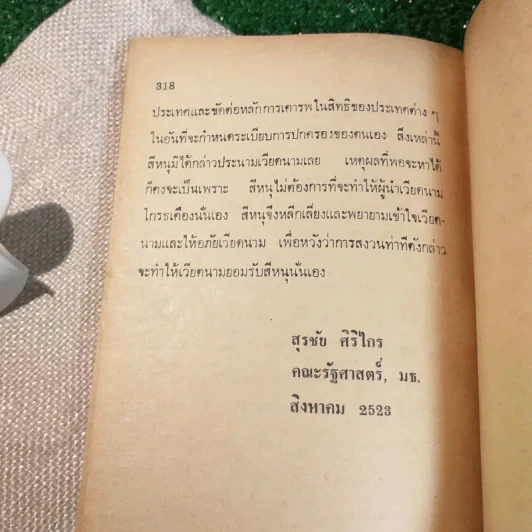 318
ประเทศและขัดต่อหลักการเคารพในสิทธิของประเทศต่าง ๆ
ในอันที่จะกำหนดระเบียบการปกครองของตนเอง สิ่งเหล่านี้
สีหนุมิได้กล่าวประนามเวียดนามเลย เหตุผลที่พอจะหาได้
ก็คงจะเป็นเพราะ สีหนุไม่ต้องการที่จะทำให้ผู้นำเวียดนาม
โกรธเคืองนั่นเอง สีหนุจึงหลีกเลี่ยงและพยายามเข้าใจเวียด-
นามและให้อภัยเวียดนาม เพื่อหวังว่าการสงวนท่าทีดังกล่าว
จะทำให้เวียดนามยอมรับสีหนุนั่นเอง
สุรชัย ศิริไกร
คณะรัฐศาสตร์, มธ.
สิงหาคม 2523